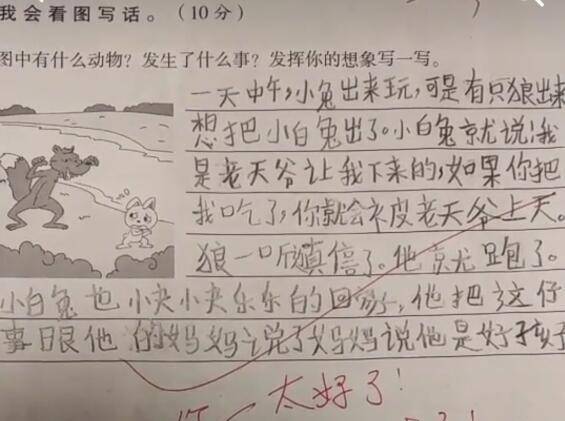 我会看图写话。（10分）
图中有什么动物？发生了什么事？发挥你的想象写一写。
一天中午，小兔出来玩，可是有只狼出来
想把小白兔出了。小白兔京尤说！我
是老天爷让我下来的，如果你把
我吃了，你就会礻皮老天爷上天。
狼一口斤真信了。他京尤跑了。
小白兔也小夬小夬乐乐的回家了，他把这仔
事跟他的妈妈说了妈妈说他是好孩子
太好了！